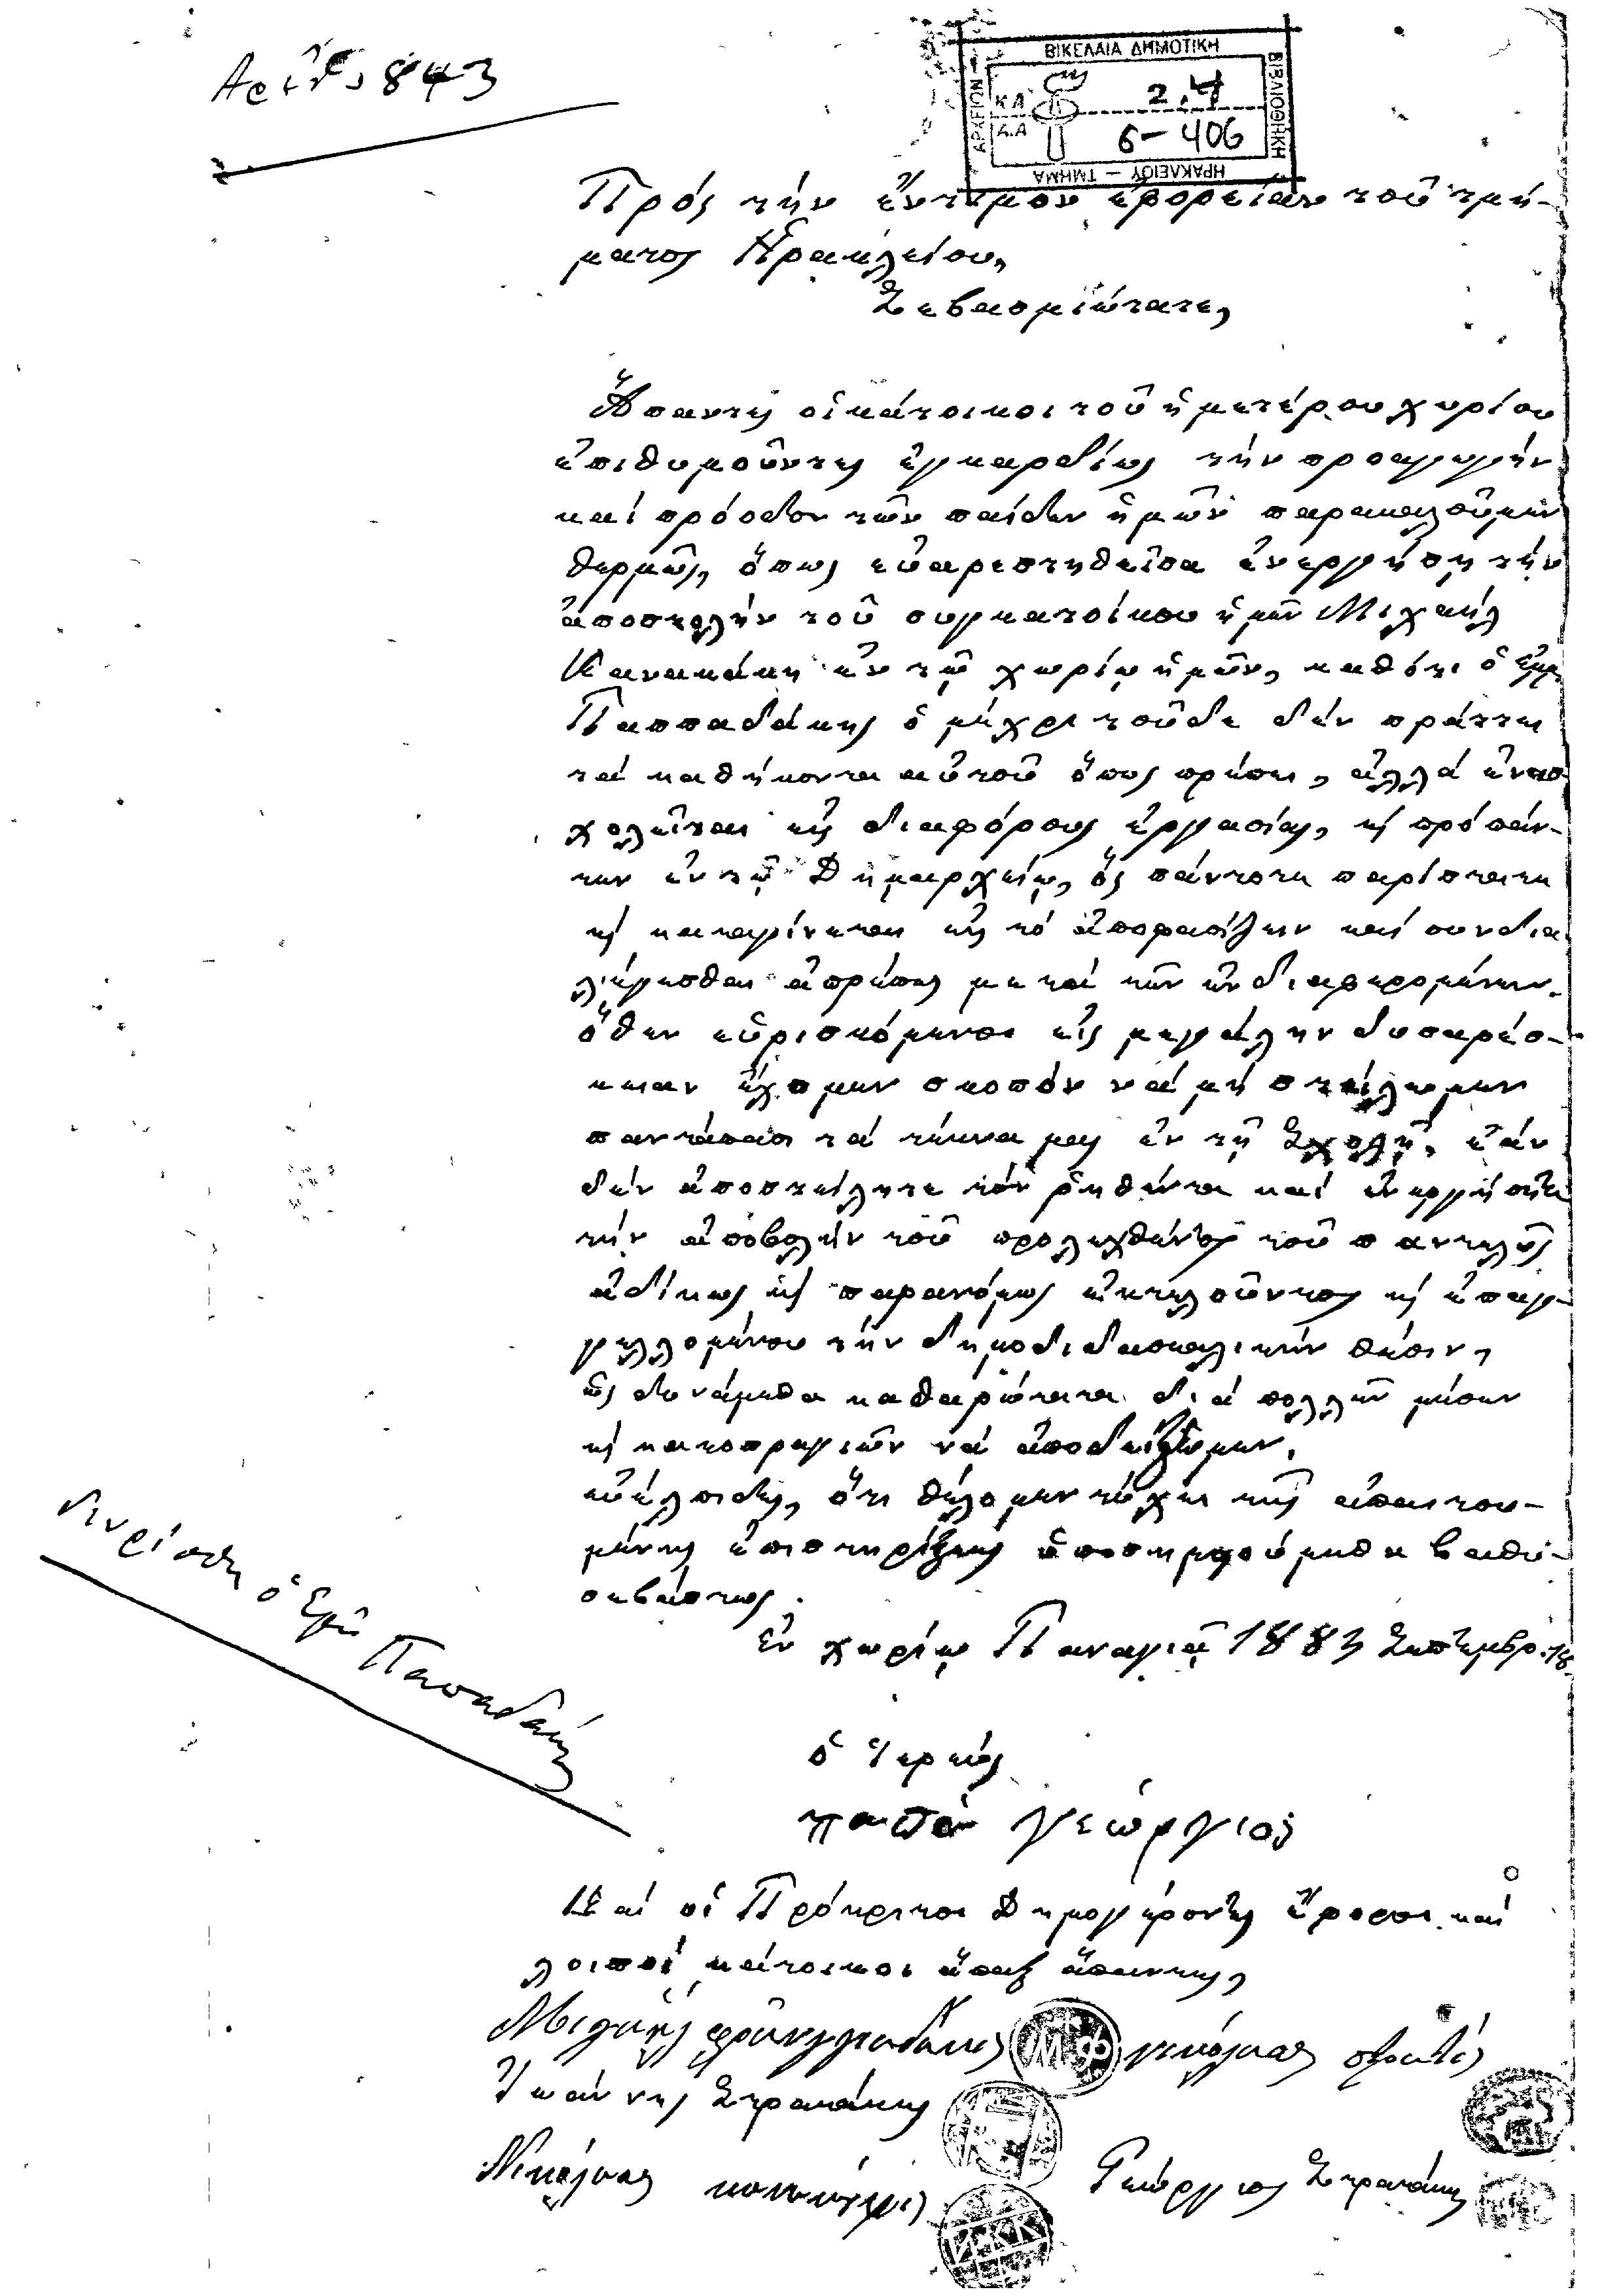 Ἀριθ. 843
ΒΙΚΕΛΑΙΑ ΔΗΜΟΤΙΚΗ
ΒΙΒΛΙΟΘΗΚΗ
ΗΡΑΚΛΕΙΟΥ — ΤΜΗΜΑ
ΑΡΧΕΙΩΝ
Κ.Α 2.4
Α.Α 6-406
Πρός τήν ἔντιμον ἐφορείαν τοῦ τμή-
ματος Ἡρακλείου,
Σεβασμιώτατε,
Ἅπαντες οἱ κάτοικοι τοῦ ἡμετέρου χωρίου
ἐπιθυμοῦντες ἐγκαρδίως τήν προαγωγήν
καί πρόοδον τῶν παίδων ἡμῶν παρακαλοῦμεν
θερμῶς, ὅπως εὐαρεστηθεῖσα ἐνεργήσῃ τήν
ἀποστολήν τοῦ συγκατοίκου ἡμῶν Μιχαήλ
Κανακάκη ἐν τῷ χωρίῳ ἡμῶν, καθότι ὁ Ἐμμ.
Παππαδάκης ὁ μέχρι τοῦδε δέν πράττει
τά καθήκοντα αὐτοῦ ὅπως πρέπει, ἀλλά ἐνασ-
χολεῖται εἰς διαφόρους ἐργασίας, κ προ πάν-
των ἐν τῷ Δημαρχείῳ, ὅς πάντοτε παρίσταται
κ καταγίνεται εἰς τό ἀποφασίζειν καί συνδια-
λέγεσθαι ἀπρεπῶς μετά τῶν ἐνδιαφερομένων.
ὅθεν εὑρισκόμενοι εἰς μεγάλην δυσαρέσ-
κειαν ἔχομεν σκοπόν νά μή στείλωμεν
παντάπασι τά τέκνα μας ἐν τῇ Σχολῇ, ἐάν
δέν ἀποστείλητε τόν ῥηθέντα καί ἐνεργήσητε
τήν ἀποβολήν τοῦ προλεχθέντος τοῦ παντελῶς
ἀδίκως κ παρανόμως ἐκτελοῦντος κ ἐπαγ-
γελλομένου τήν δημοδιδασκαλικήν θέσιν,
ὡς δυνάμεθα καθαρώτατα διά πολλῶν μέσων
κ κακοπραγιῶν νά ἀποδείξωμεν.
εὐέλπιδες, ὅτι θέλομεν τύχει τῆς ἀπαιτου-
μένης ἐπιστηρίξεως ὑποσημειούμεθα βαθυ-
σεβάστως.
Ἐν χωρίῳ Παναγιᾷ 1883 Σεπτεμβρ. 18
ὁ Ἱερεύς
παπά Γεώργιος
Καί οἱ Πρόκριτοι Δημογέροντες Ἔφοροι καί
λοιποί κάτοικοι ἅπαξ ἅπαντες,
Μιχαήλ φραγγιαδάκις ΜΦ νικόλαος
Ἰωάννης Σπρατάκης
Νικόλαος
ΝΚΚ
Γεώργιος Σπρατάκης
ὁ Ἐμμ Παπαδάκης